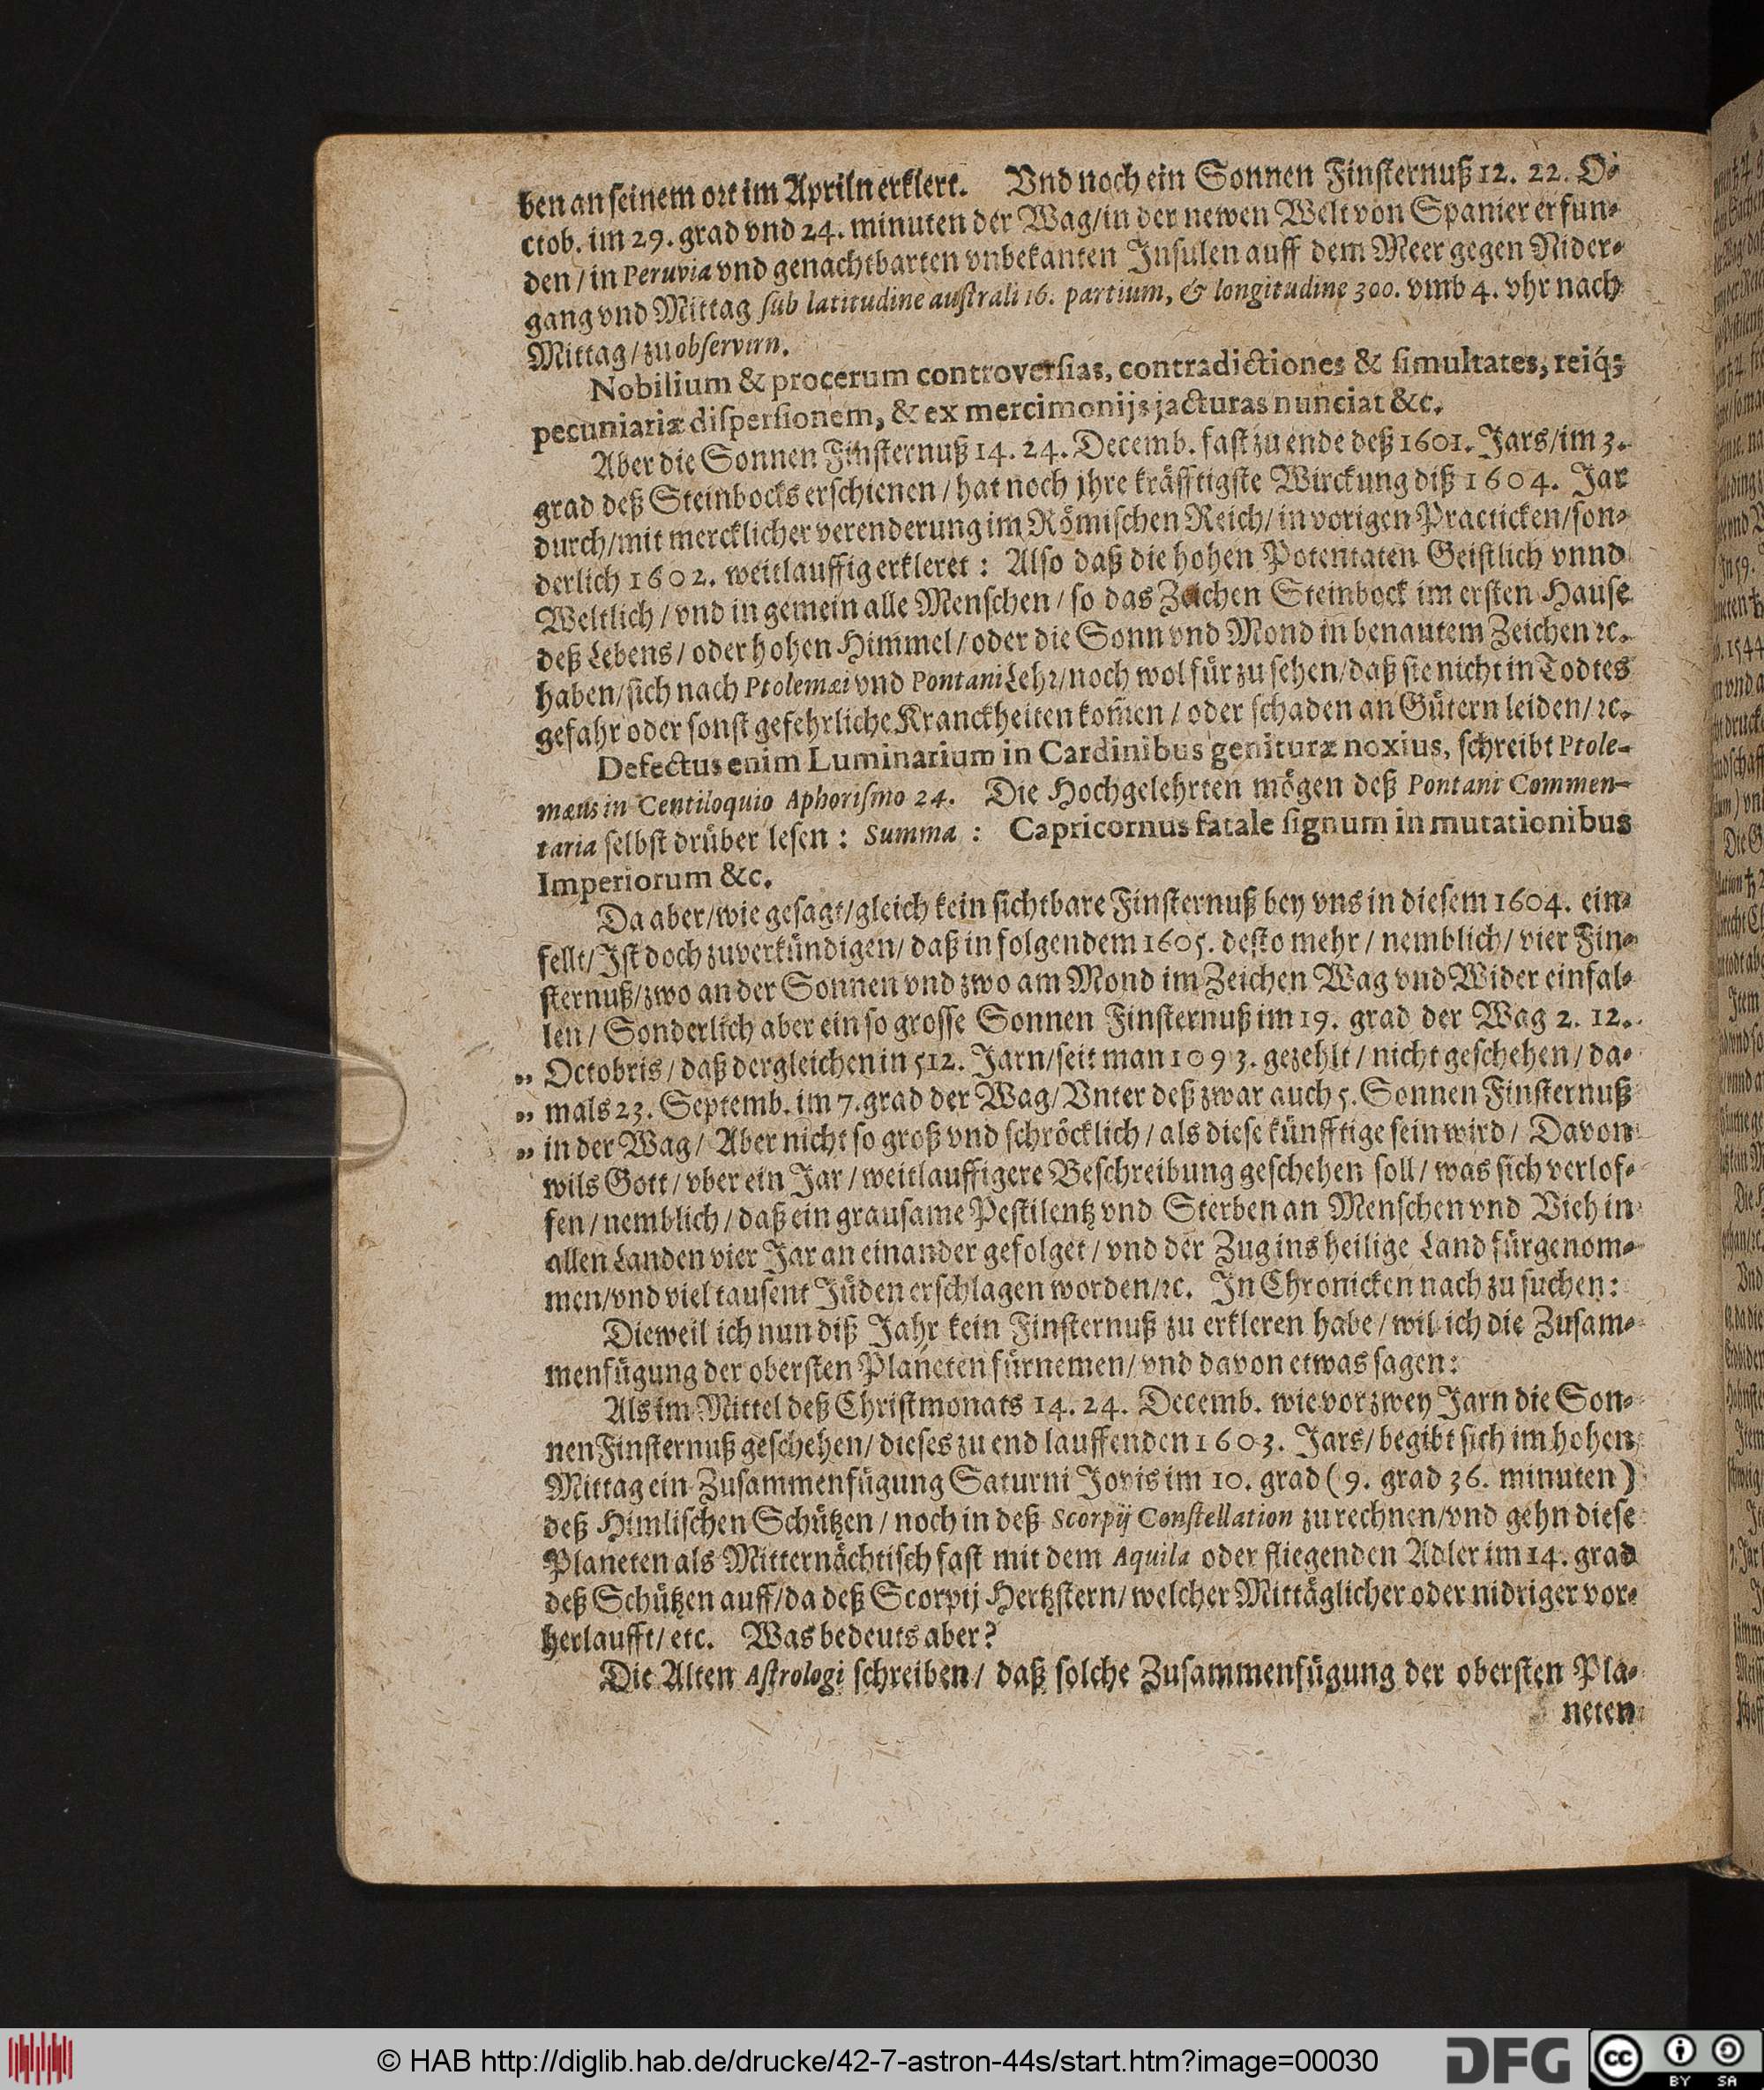 ben an seinem ort im Apriln erklert. Vnd noch ein Sonnen Finsternuß 12. 22. O-
ctob. im 29. grad vnd 24. minuten der Wag/in der newen Welt von Spanier erfun-
den/in Peruvia vnd genachtbarten vnbekanten Insulen auff dem Meer gegen Nider-
gang vnd Mittag sub latitudine australi 16. partium, & longitudine 300. vmb 4. vhr nach
Mittag/zu observirn.
Nobilium & procerum controversias, contradictiones & simultates, reiq́;
pecuniariæ dispersionem, & ex mercimonijs jacturas nunciat &c.
Aber die Sonnen Finsternuß 14. 24. Decemb. fast zu ende deß 1601. Jars/im 3.
grad deß Steinbocks erschienen/hat noch jhre kräfftigste Wirckung diß 1604. Jar
durch/mit mercklicher verenderung im Römischen Reich/in vorigen Practicken/son-
derlich 1602. weitlauffig erkleret: Also daß die hohen Potentaten Geistlich vnnd
Weltlich/vnd in gemein alle Menschen/so das Zeichen Steinbock im ersten Hause
deß Lebens/oder hohen Himmel/oder die Sonn vnd Mond in benantem Zeichen ꝛc.
haben/sich nach Ptolemæi vnd Pontani Lehr/noch wol für zu sehen/daß sie nicht in Todtes
gefahr oder sonst gefehrliche Kranckheiten kom̃en/oder schaden an Gütern leiden/ꝛc.
Defectus enim Luminarium in Cardinibus genituræ noxius, schreibt Ptole-
mæus in Centiloquio Aphorismo 24. Die Hochgelehrten mögen deß Pontani Commen-
taria selbst drüber lesen: Summa: Capricornus fatale signum in mutationibus
Imperiorum &c.
Da aber/wie gesagt/gleich kein sichtbare Finsternuß bey vns in diesem 1604. ein-
fellt/Ist doch zuverkündigen/daß in folgendem 1605. desto mehr/nemblich/vier Fin-
sternuß/zwo an der Sonnen vnd zwo am Mond im Zeichen Wag vnd Wider einfal-
len/Sonderlich aber ein so grosse Sonnen Finsternuß im 19. grad der Wag 2. 12.
„ Octobris/daß dergleichen in 512. Jarn/seit man 1093. gezehlt/nicht geschehen/da-
„ mals 23. Septemb. im 7. grad der Wag/Vnter deß zwar auch 5. Sonnen Finsternuß
„ in der Wag/Aber nicht so groß vnd schröcklich/als diese künfftige sein wird/Davon
wils Gott/vber ein Jar/weitlauffigere Beschreibung geschehen soll/was sich verlof-
fen/nemblich/daß ein grausame Pestilentz vnd Sterben an Menschen vnd Vieh in
allen Landen vier Jar an einander gefolget/vnd der Zug ins heilige Land fürgenom-
men/vnd viel tausent Jüden erschlagen worden/ꝛc. In Chronicken nach zu suchen:
Dieweil ich nun diß Jahr kein Finsternuß zu erkleren habe/wil ich die Zusam-
menfügung der obersten Planeten fürnemen/vnd davon etwas sagen:
Als im Mittel deß Christmonats 14. 24. Decemb. wie vor zwey Jarn die Son-
nen Finsternuß geschehen/dieses zu end lauffenden 1603. Jars/begibt sich im hohen
Mittag ein Zusammenfügung Saturni Jovis im 10. grad (9. grad 36. minuten)
deß Himlischen Schützen/noch in deß Scorpij Constellation zu rechnen/vnd gehn diese
Planeten als Mitternächtisch fast mit dem Aquila oder fliegenden Adler im 14. grad
deß Schützen auff/da deß Scorpij Hertzstern/welcher Mittäglicher oder nidriger vor-
herlaufft/etc. Was bedeuts aber?
Die Alten Astrologi schreiben/daß solche Zusammenfügung der obersten Pla-
neten
© HAB http://diglib.hab.de/drucke/42-7-astron-44s/start.htm?image=00030
DFG
cc BY SA